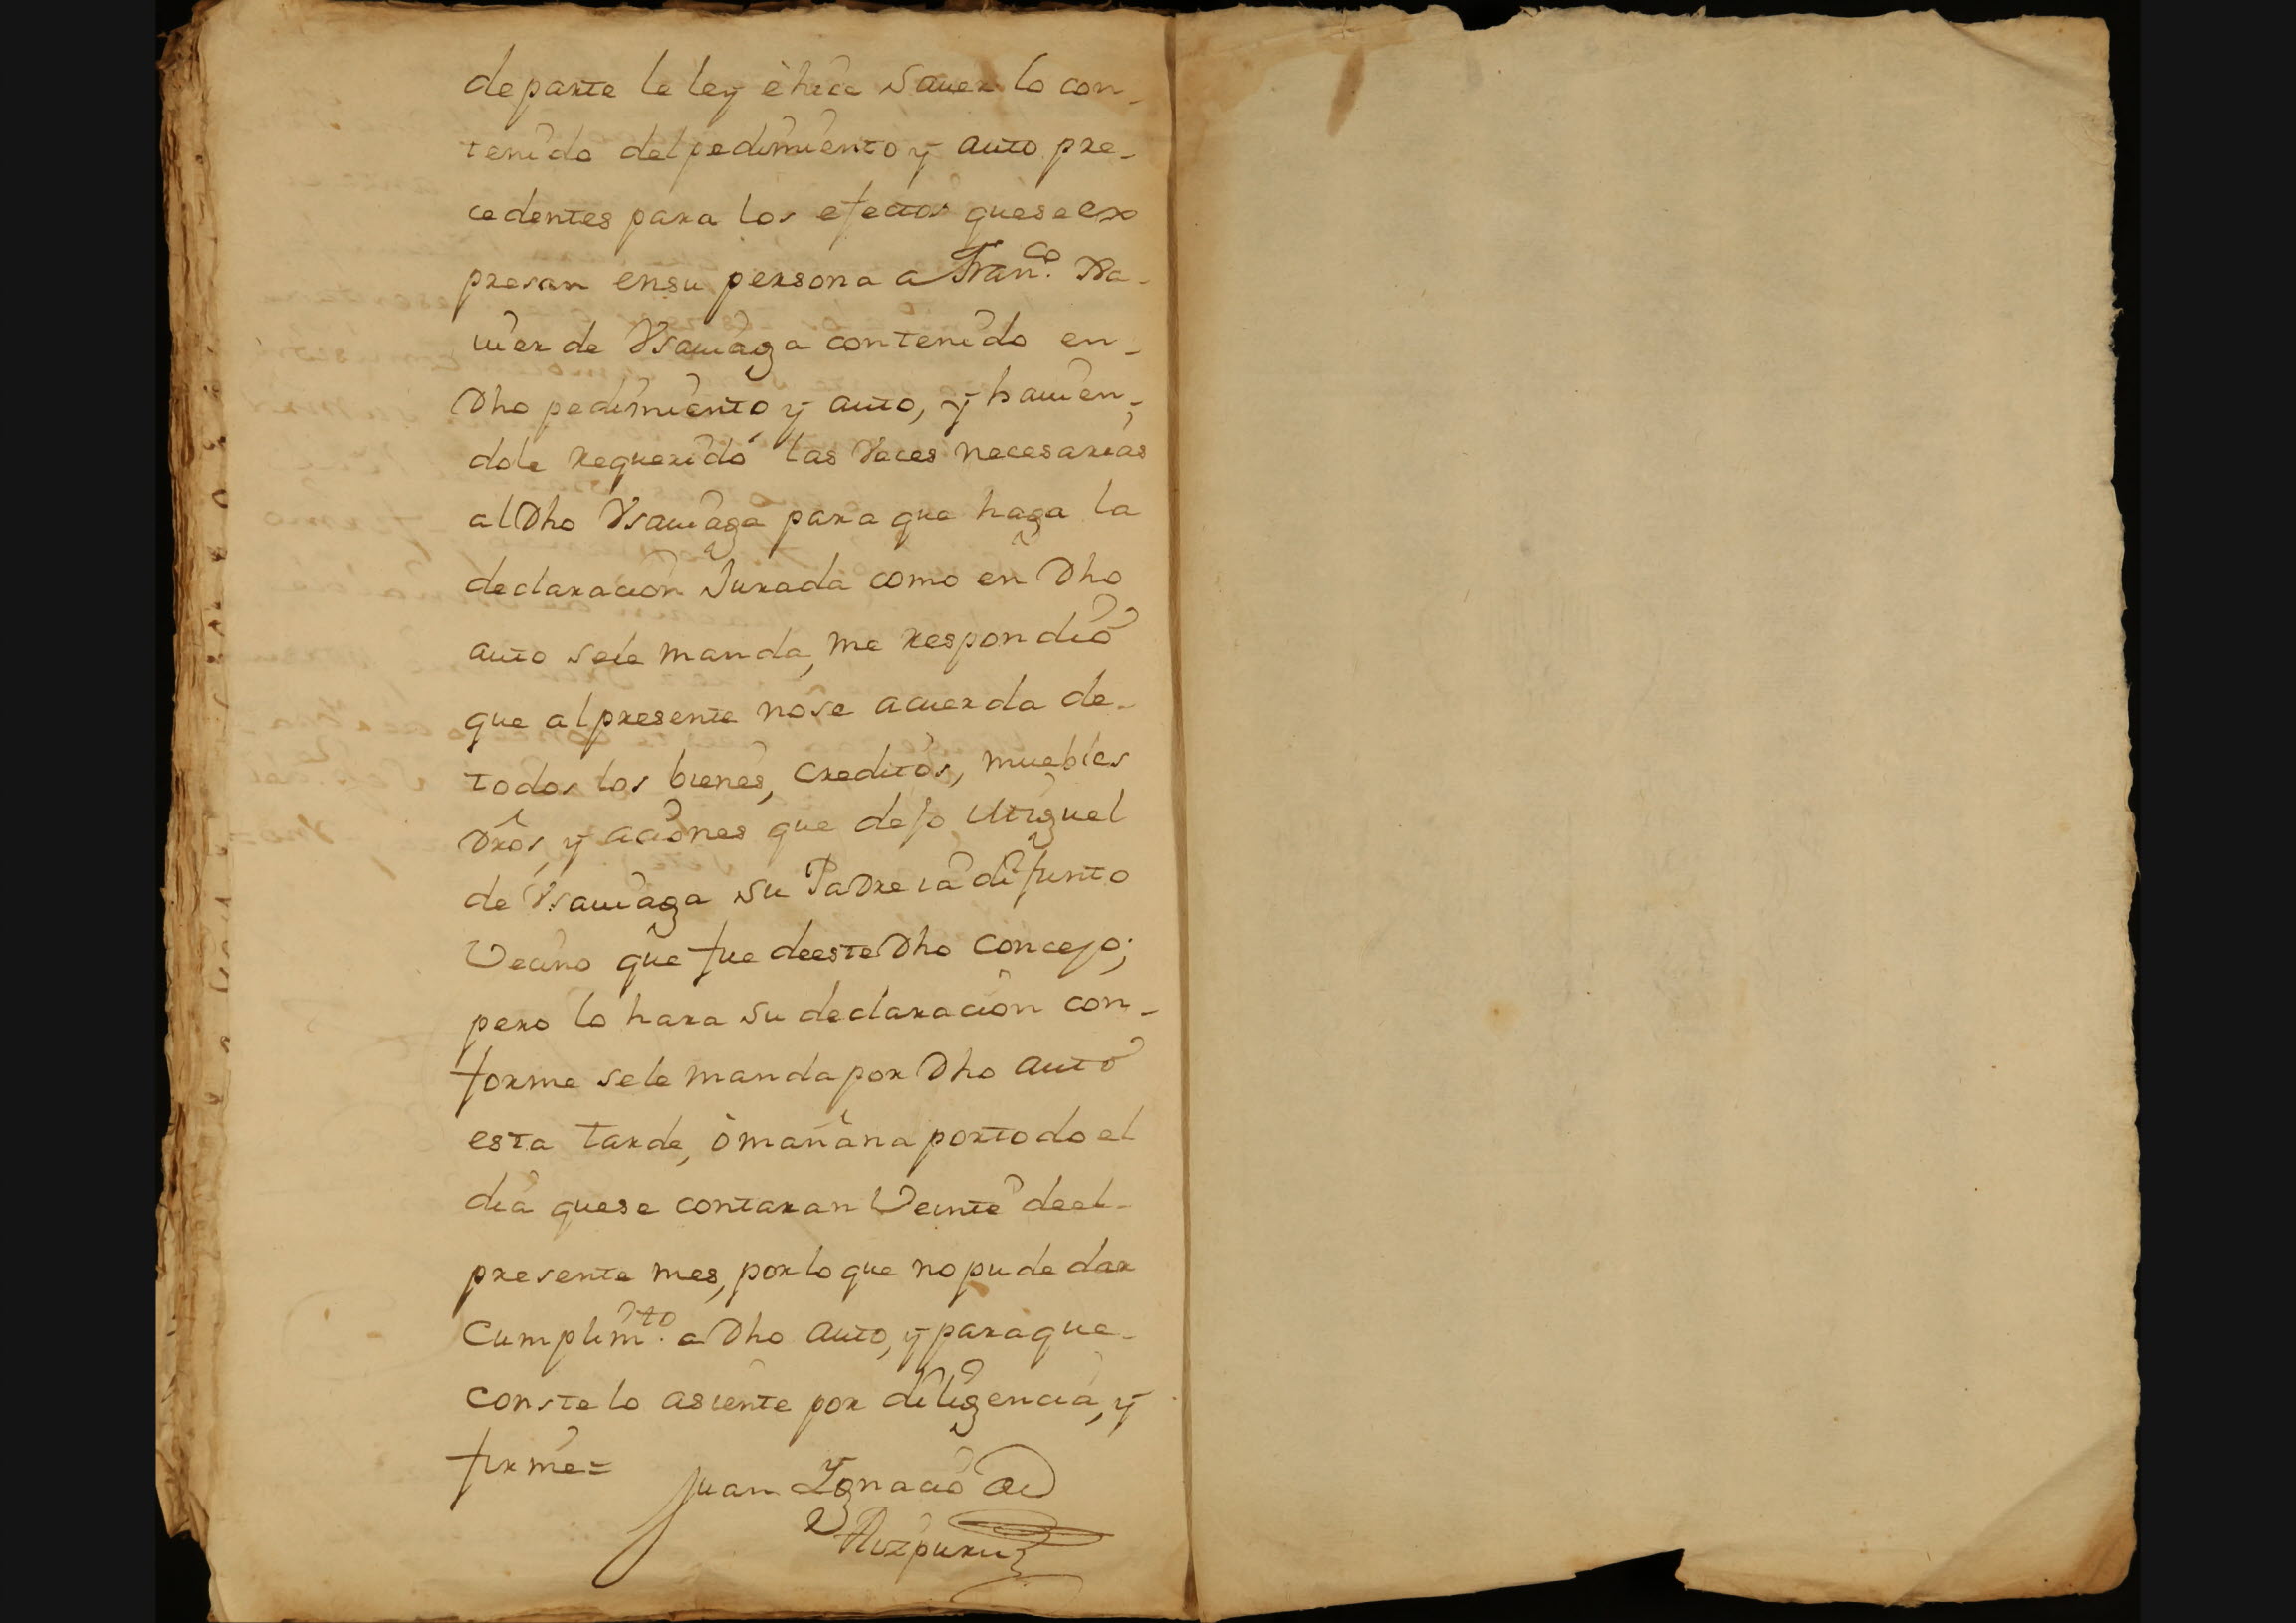 de parte le ley è hice Sauer lo con-
tenido del pedimiento y auto pre-
cedentes para los efectos que se ex
presan en su persona a Franco. Xa-
uier de Vsauiaga contenido en-
Dho pedimiento y auto, y hauien-
dole requerido las Vaces necesarias
al Dho Vsauiaga para que haga la
declaracion Jurada como en Dho
auto se le manda, me respondio
que al presente no se acuerda de-
todos los bienes, Creditos, muebles
Dros, y aciones que dejo Miguel
de Vsauiaga su Padre ia difunto
Vecino que fue de este Dho Concejo;
pero lo hara su declaracion con-
forme se le manda por Dho auto
esta tarde, ò mañana por todo el
dia que se contaran Veinte de el-
presente mes, por lo que no pude dar
Cumplimto. a Dho auto, y para que-
conste lo asiente por diligencia, y
firme=
Juan Ygnacio de